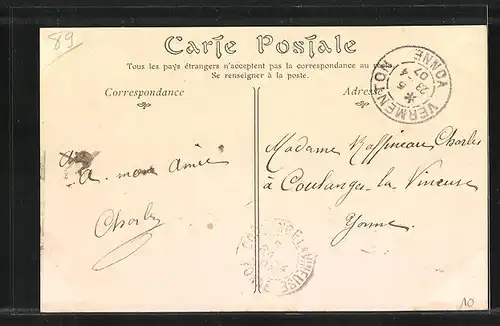 89
Carte Postale
Tous les pays étrangers n'acceptent pas la correspondance au
Se renseigner à la poste.
Correspondance
Adresse
VERMENTON
YONNE
07
A mon Amie
Charles
Madame Raffineau Charles
à Coulanges-la-Vineuse
Yonne
10